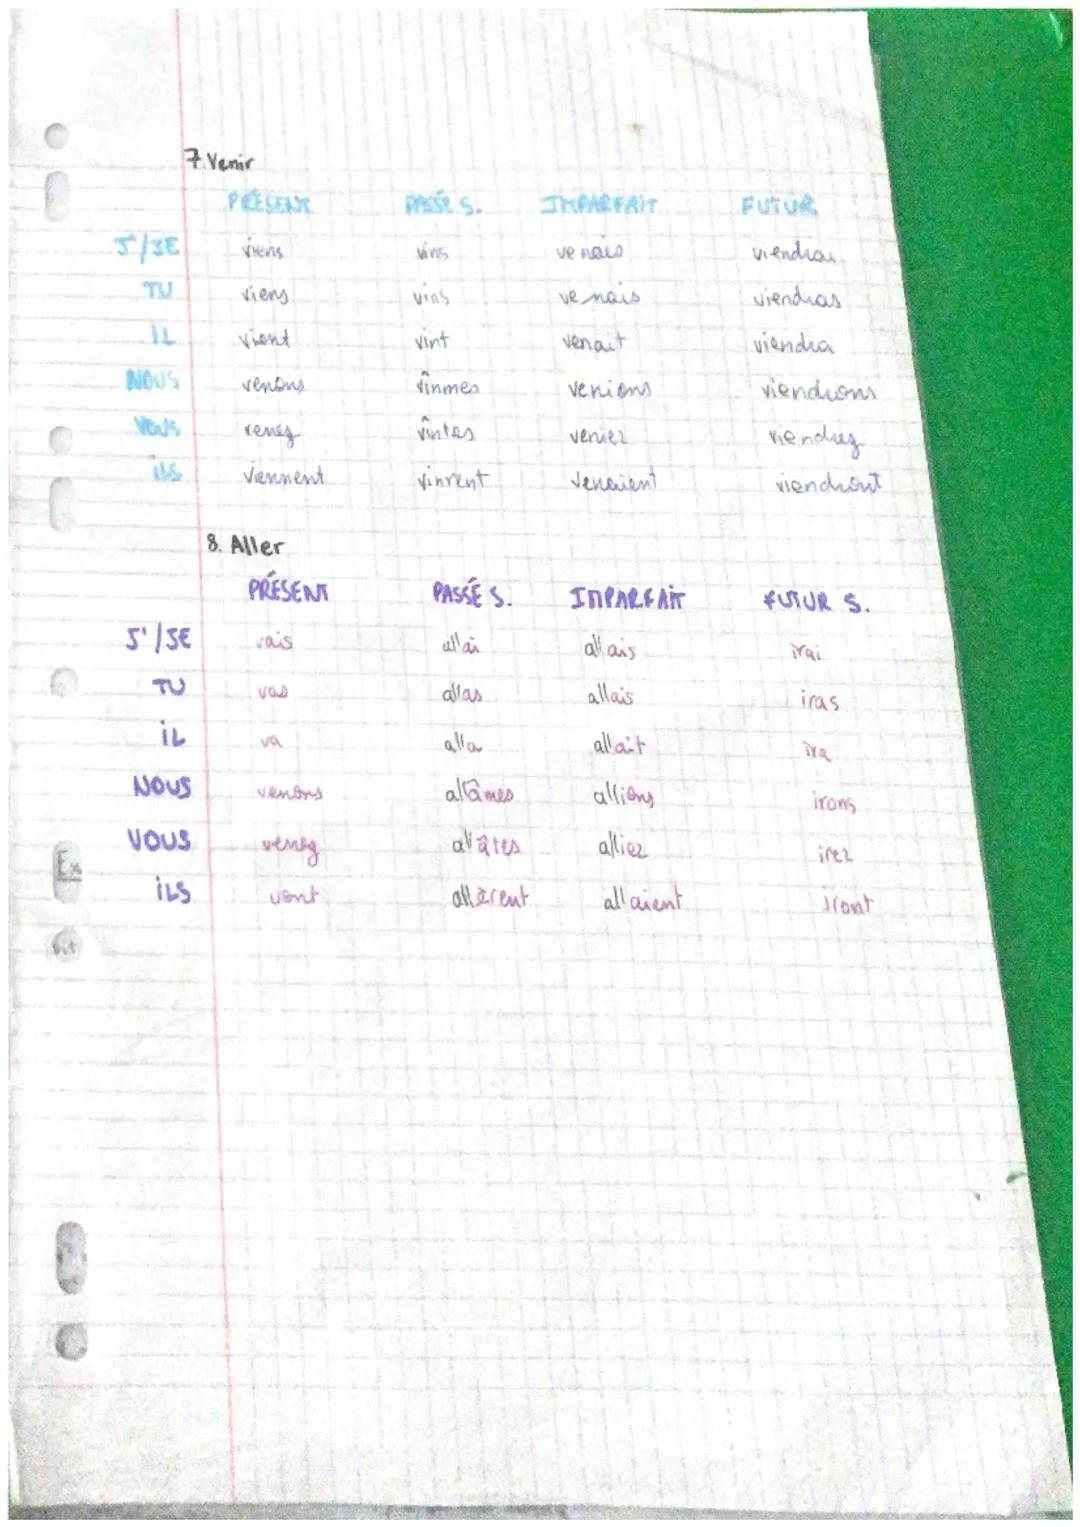 7. Venir
PRÉSENT PASSÉ S. IMPARFAIT FUTUR
J'/JE viens vins venais viendrai
TU viens vins venais viendras
IL vient vint venait viendra
NOUS venons vînmes venions viendrons
VOUS venez vîntes veniez viendrez
ILS viennent vinrent venaient viendront
8. Aller
PRÉSENT PASSÉ S. IMPARFAIT FUTUR S.
J'/JE vais allai allais irai
TU vas allas allais iras
IL va alla allait ira
NOUS venons allâmes allions irons
VOUS venez allâtes alliez irez
Ex
ILS vont allèrent allaient iront